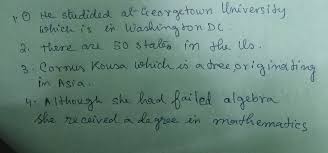 1. ① He studided at Georgetown University
which is in Washington DC.
2. There are 50 states in the Us.
3. Cornus Kousa which is a tree originating
in Asia.
4. Although she had failed algebra
She received a degree in mathematics